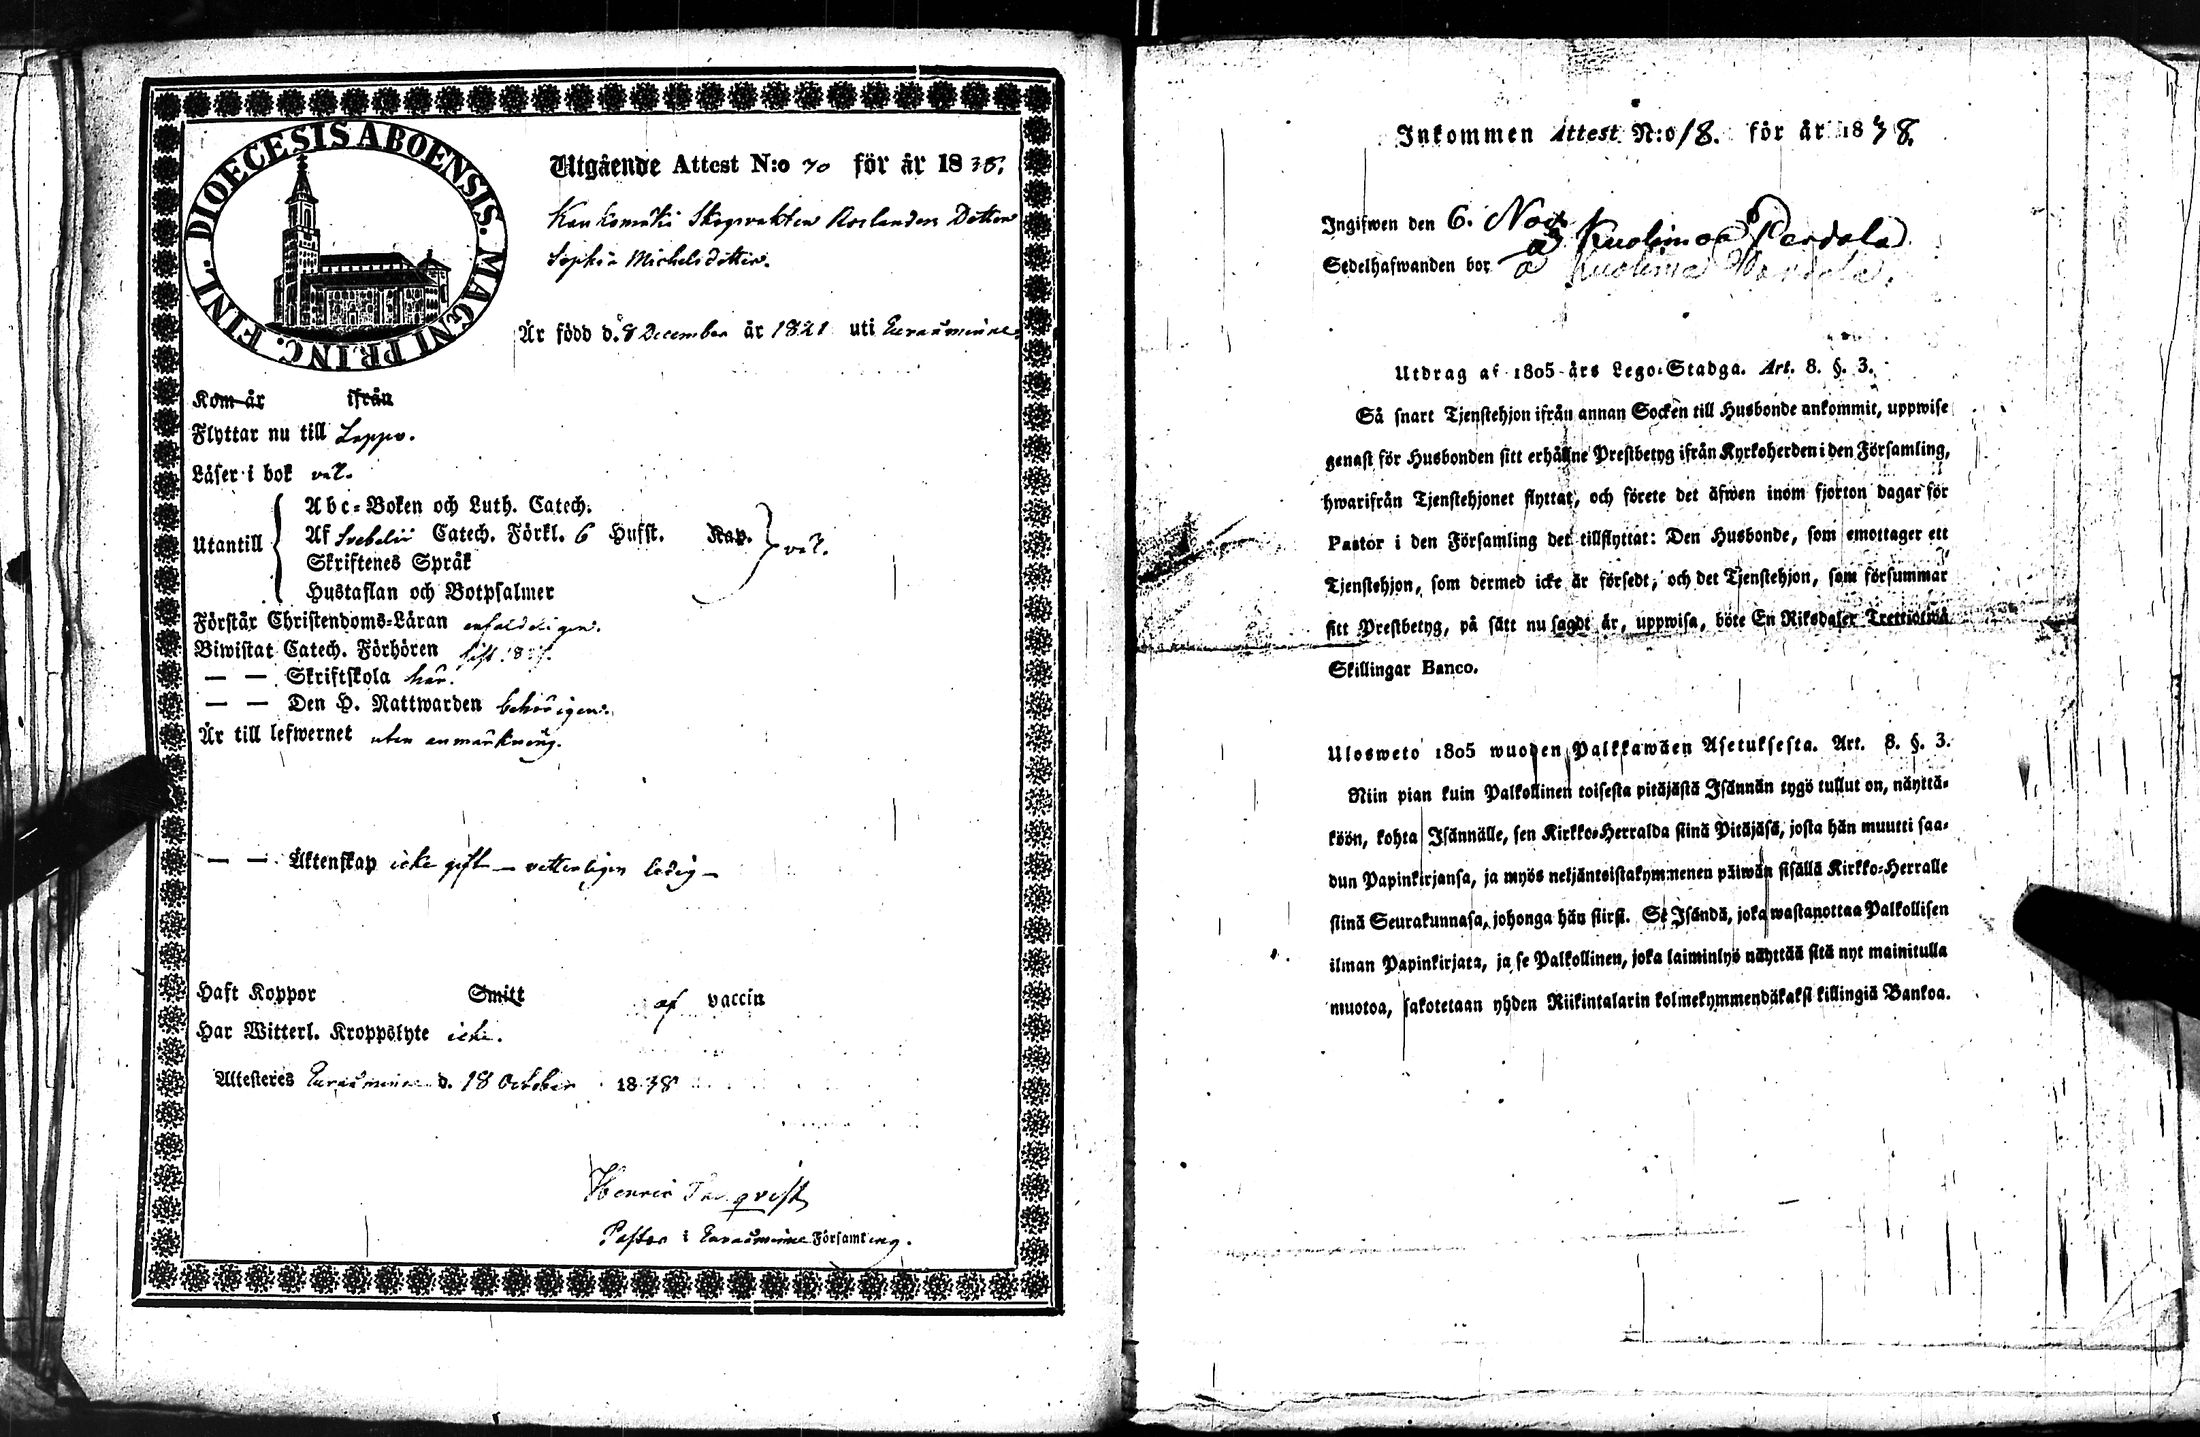 DIOECESIS ABOENSIS. MAGNI PRINC. FINL.
Utgående Attest N:o 70 för år 1838.
Skogvakten Roslanders Dotter
Sophia Michelsdotter.
Är född d. 8 December år 1821 uti Euraåminne.
Kom år ifrån
Flyttar nu till Lappo.
Läser i bok väl.
Utantill
Abc-Boken och Luth. Catech.
Af Svebelii Catech. Förkl. 6 Hufst. Kap.
Skriftenes Språk
Hustaflan och Botpsalmer
väl.
Förstår Christendoms-Läran enfaldeligen.
Biwistat Catech. Förhören sist
— — Skriftskola här.
— — Den H. Nattwarden behörigen.
Är till lefwernet utan anmärkning.
— — Äktenskap icke gift — vetterligen ledig —
Haft Koppor Smitt af vaccin
Har Witterl. Kroppslyte icke.
Attesteres Euraåminne d. 18 October 1838
Henric
Pastor i Euraåminne Församling.
Inkommen Attest N:o 18. för år 1838.
Ingifwen den 6. Nov.
å Kuolimaa Perdala
Sedelhafwanden bor å
Utdrag af 1805 års Lego-Stadga. Art. 8. §. 3.
Så snart Tjenstehjon ifrån annan Socken till Husbonde ankommit, uppwise
genast för Husbonden sitt erhållne Prestbetyg ifrån Kyrkoherden i den Församling,
hwarifrån Tjenstehjonet flyttat, och förete det äfwen inom fjorton dagar för
Pastor i den Församling det tillflyttat: Den Husbonde, som emottager ett
Tjenstehjon, som dermed icke är försedt, och det Tjenstehjon, som försummar
sitt Prestbetyg, på sätt nu sagdt är, uppwisa, böte En Riksdaler Trettiotwå
Skillingar Banco.
Ulosweto 1805 wuoden Palkkawäen Asetuksesta. Art. 8. §. 3.
Niin pian kuin Palkollinen toisesta pitäjästä Isännän tygö tullut on, näyttä-
köön, kohta Isännälle, sen Kirkko-Herralda siinä Pitäjäsä, josta hän muutti saa-
dun Papinkirjansa, ja myös neljäntoistakymmenen päiwän sisällä Kirkko-Herralle
siinä Seurakunnasa, johonga hän siirsi. Se Isändä, joka wastanottaa Palkollisen
ilman Papinkirjata, ja se Palkollinen, joka laiminlyö näyttää sitä nyt mainitulla
muotoa, sakotetaan yhden Riikintalarin kolmekymmendäkaksi killingiä Bankoa.